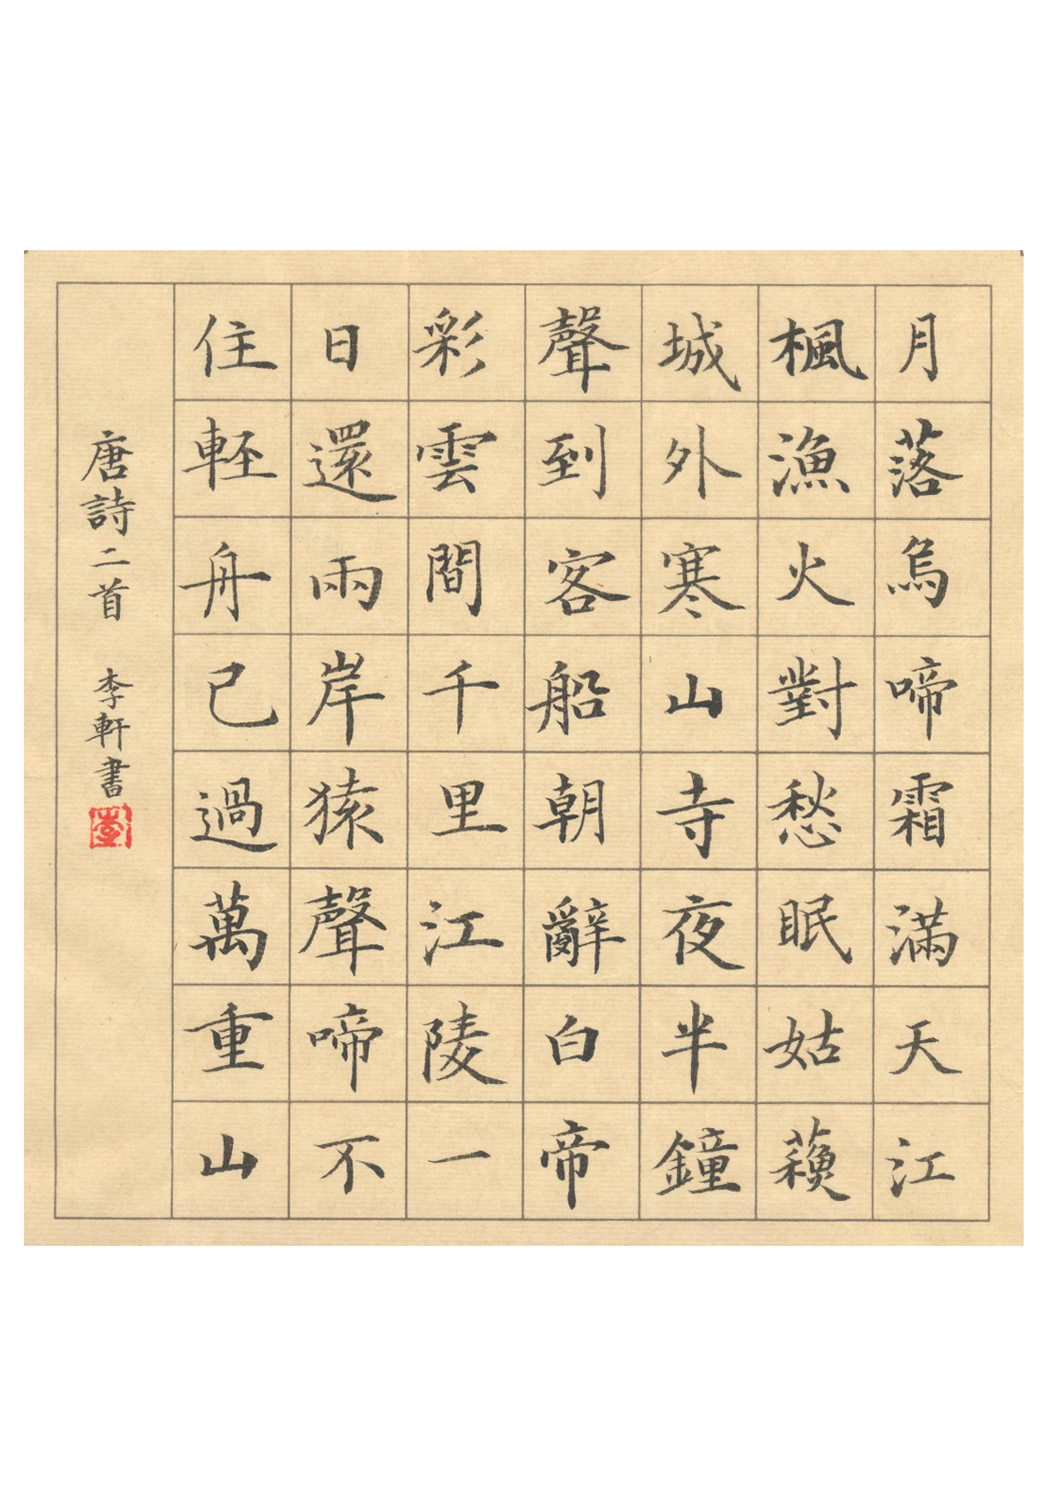 月落烏啼霜滿天江
楓漁火對愁眠姑蘓
城外寒山寺夜半鐘
聲到客船朝辭白帝
彩雲間千里江陵一
日還兩岸猿聲啼不
住軽舟已過萬重山
唐詩二首 李軒書
李